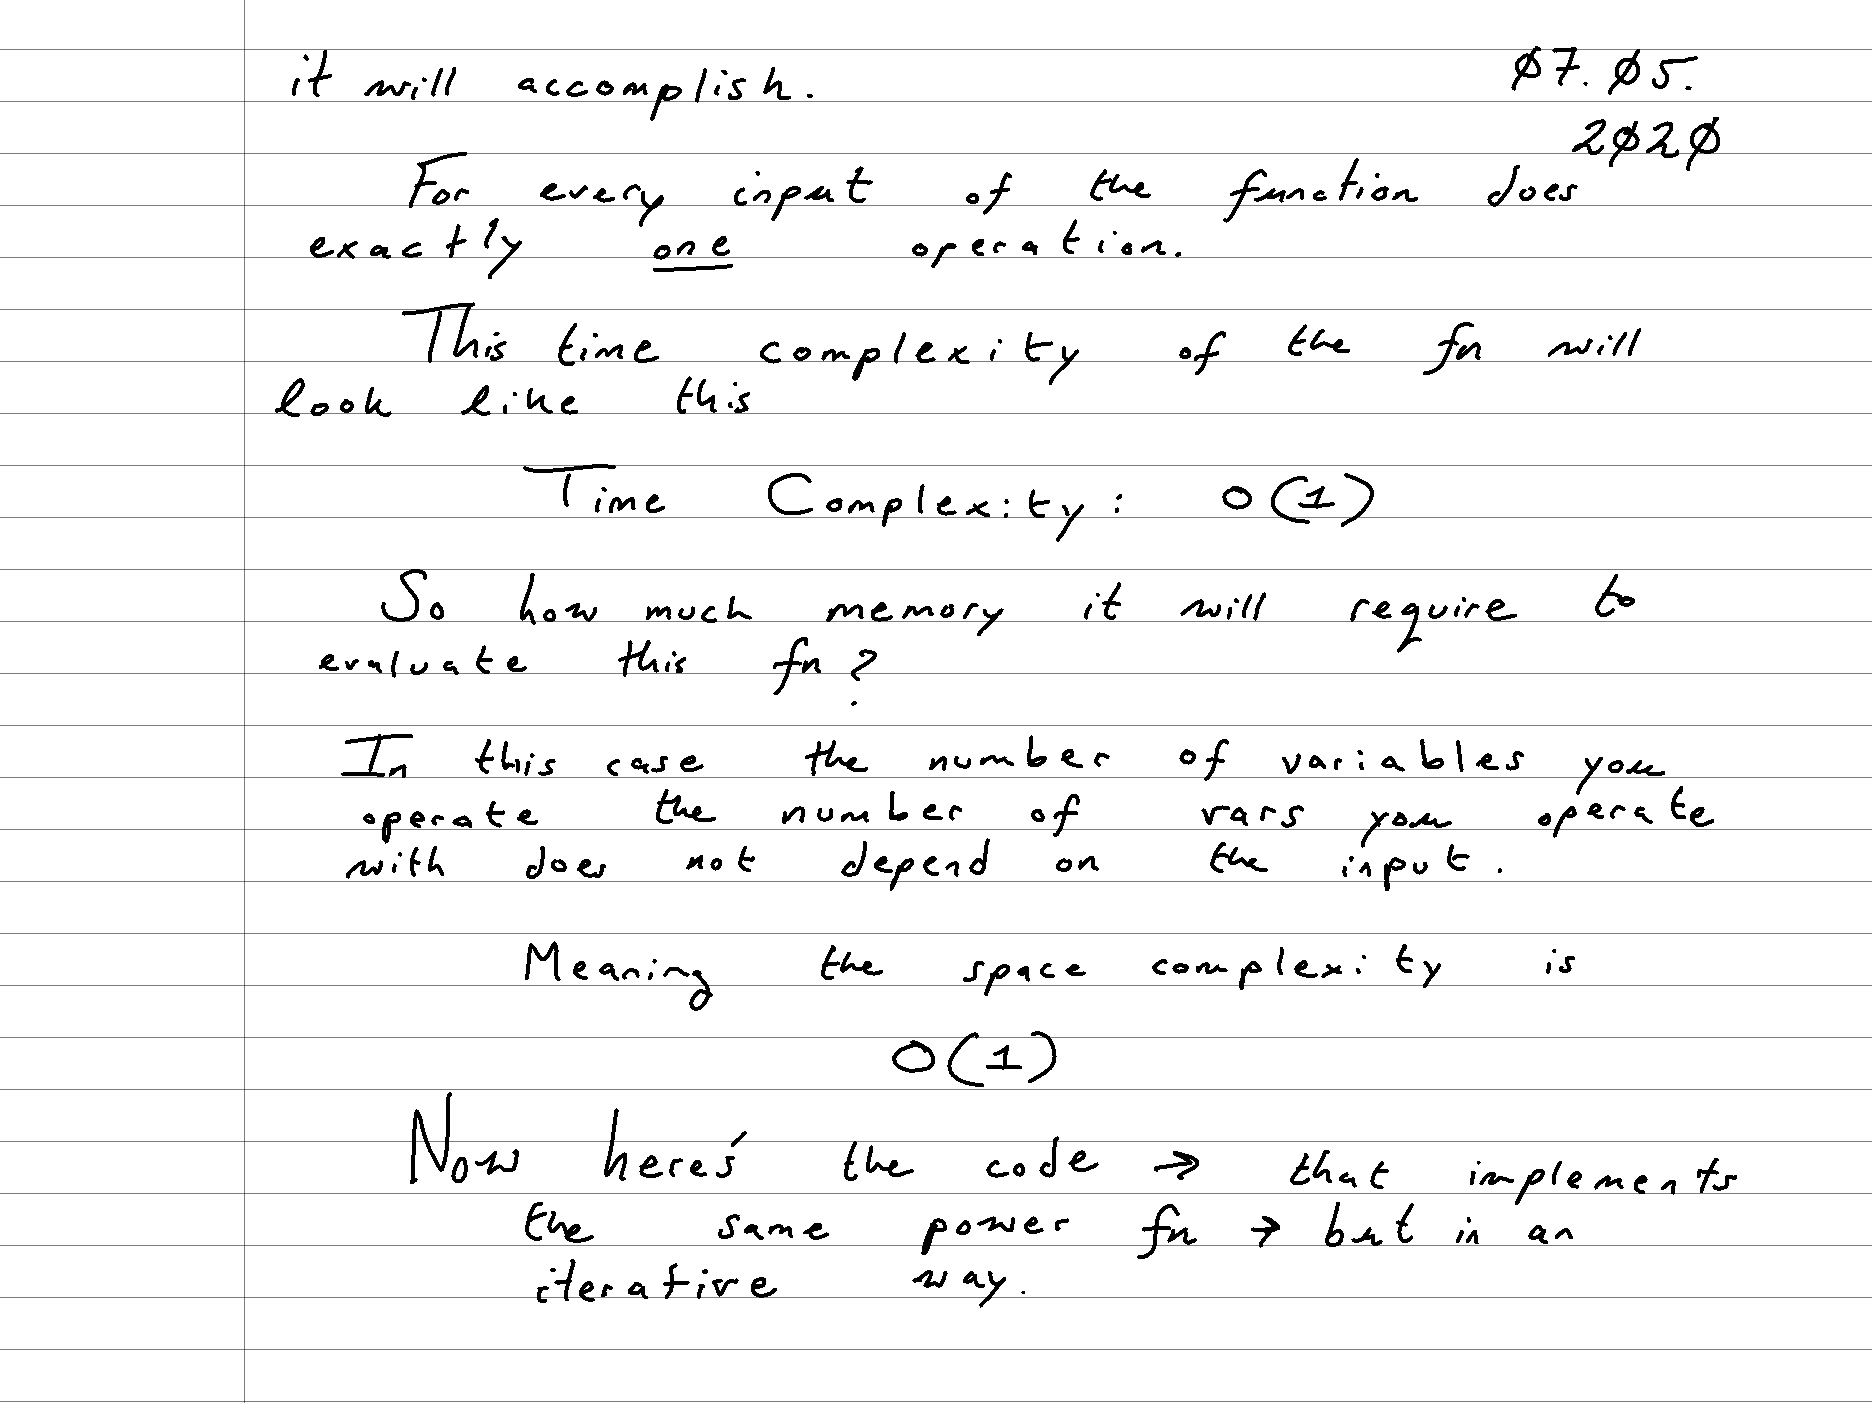 it will accomplish.
Ø7. Ø5.
2Ø2Ø
For every input of the function does
exactly one operation.
This time complexity of the fn will
look like this
Time Complexity: O(1)
So how much memory it will require to
evaluate this fn?
In this case the number of variables you
operate the number of vars you operate
with does not depend on the input.
Meaning the space complexity is
O(1)
Now here's the code → that implements
the same power fn → but in an
iterative way.